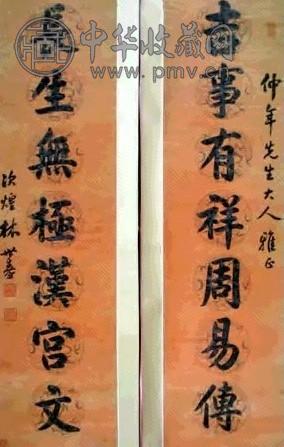 中华收藏网
www.pmv.cn
仲年先生大人雅正
吉事有祥周易傳
長生無極漢宮文
次煌林世燾